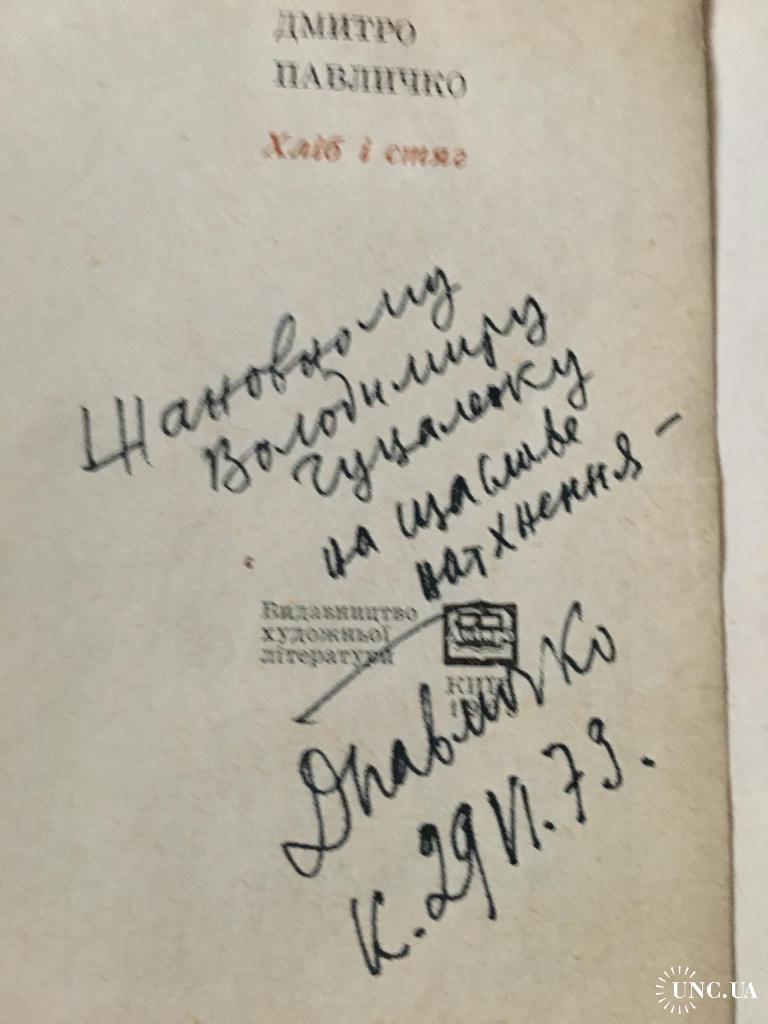 ДМИТРО
ПАВЛИЧКО
Хліб і стяг
Шановному
Володимиру
Гуцаленку
на щасливе
натхнення –
Видавництво
художньої
літератури
КИЇВ
ДПавличко
К. 29 VI. 73.
UNC.UA